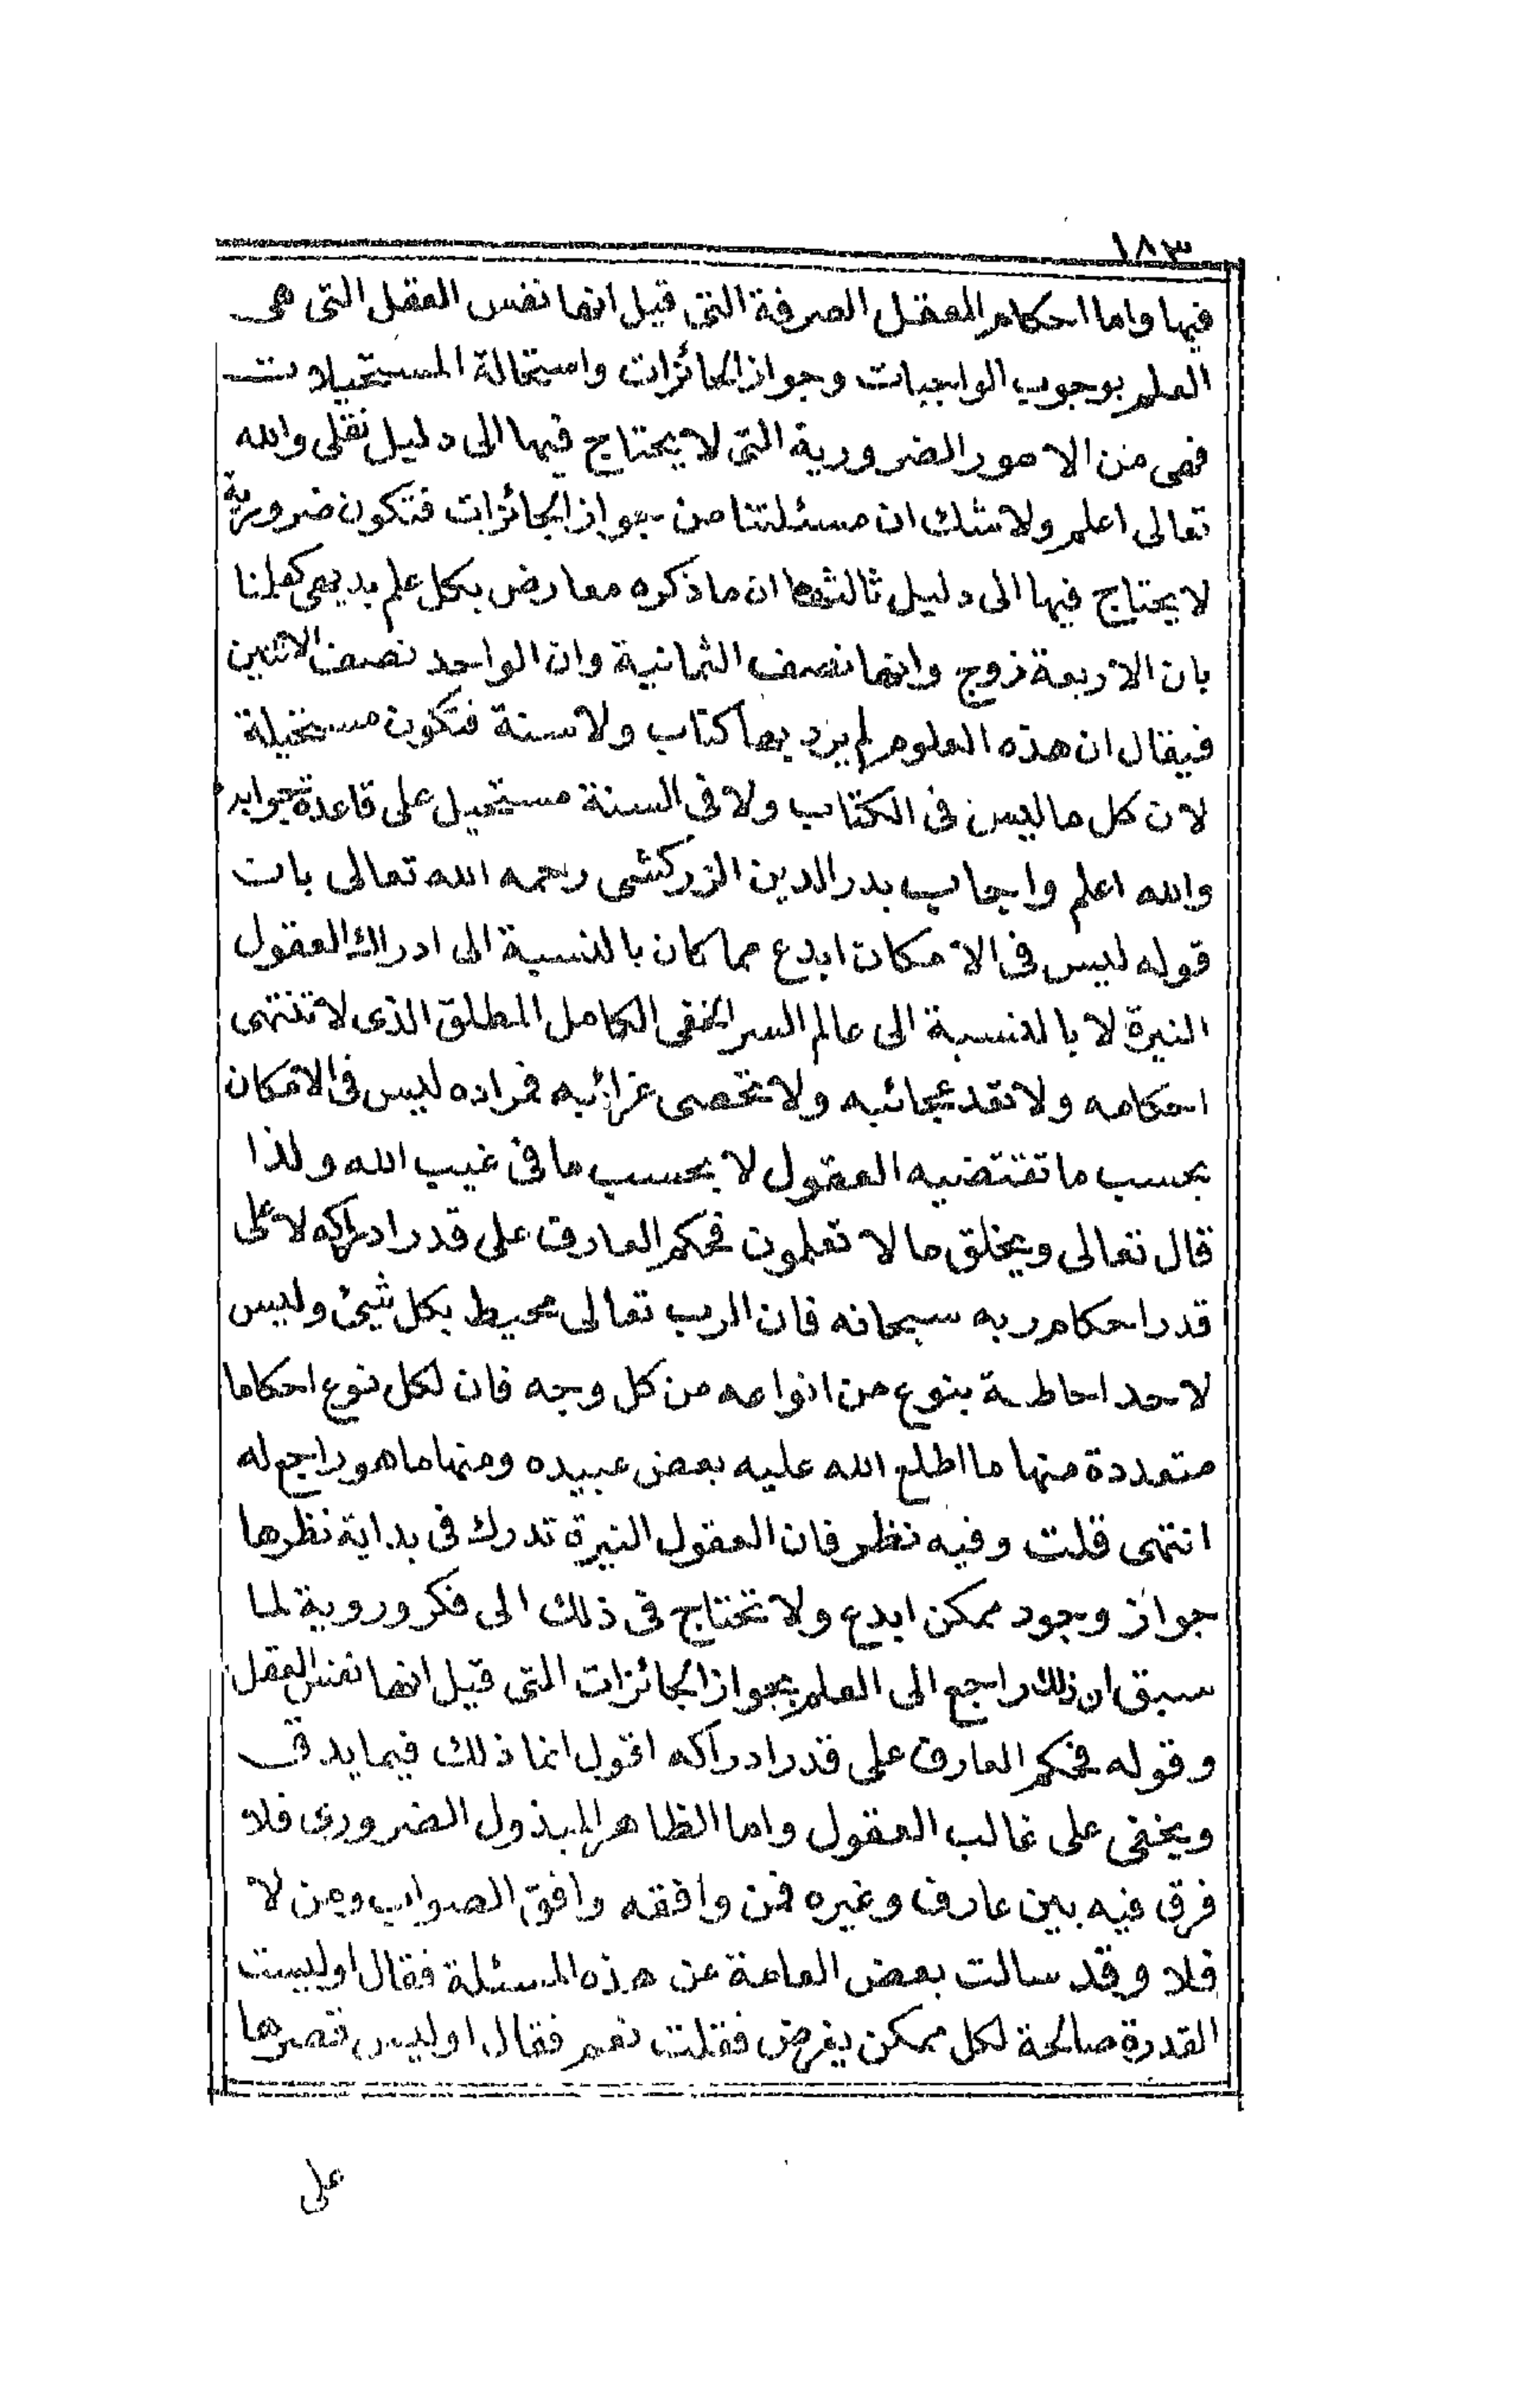 ١٨٣
فيها واما احكام العقل الصرفة التى قيل انها نفس العقل التى هى
العلم بوجوب الواجبات وجواز الجائزات واستحالة المستحيلات
فهى من الامور الضرورية التى لا يحتاج فيها الى دليل نقلى والله
تعالى اعلم ولا شك ان مسئلتنا من جواز الجائزات فتكون ضرورية
لا يحتاج فيها الى دليل ثالثها ان ما ذكره معارض بكل علم بديهى كعلمنا
بان الاربعة زوج وانها نصف الثمانية وان الواحد نصف الاثنين
فيقال ان هذه العلوم لم يرد بها كتاب ولا سنة فتكون مستحيلة
لان كل ما ليس فى الكتاب ولا فى السنة مستحيل على قاعدة جوابه
والله اعلم واجاب بدر الدين الزركشى رحمه الله تعالى بان
قوله ليس فى الامكان ابدع مما كان بالنسبة الى ادراك العقول
النيرة لا بالنسبة الى عالم السر الخفى الكامل المطلق الذى لا تنتهى
احكامه ولا تفد عجائبه ولا تحصى غرائبه فمراده ليس فى الامكان
بحسب ما تقتضيه العقول لا بحسب ما فى غيب الله ولذا
قال تعالى ويخلق ما لا تعلمون فحكم العارف على قدر ادراكه لا على
قدر احكام ربه سبحانه فان الرب تعالى محيط بكل شيئ وليس
لاحد احاطة بنوع من انواعه من كل وجه فان لكل نوع احكاما
متعددة منها ما اطلع الله عليه بعض عبيده ومنها ما هو راجع له
انتهى قلت وفيه نظر فان العقول النيرة تدرك فى بداية نظرها
جواز وجود ممكن ابدع ولا تحتاج فى ذلك الى فكر وروية لما
سبق ان ذلك راجع الى العلم بجواز الجائزات التى قيل انها نفس العقل
وقوله فحكم العارف على قدر ادراكه اقول انما ذلك فيما يدق
ويخفى على غالب العقول واما الظاهر المبذول الضرورى فلا
فرق فيه بين عارف وغيره فمن وافقه وافق الصواب ومن لا
فلا وقد سالت بعض العامة عن هذه المسئلة فقال اوليست
القدرة صالحة لكل ممكن يفرض فقلت نعم فقال اوليس قصرها
على